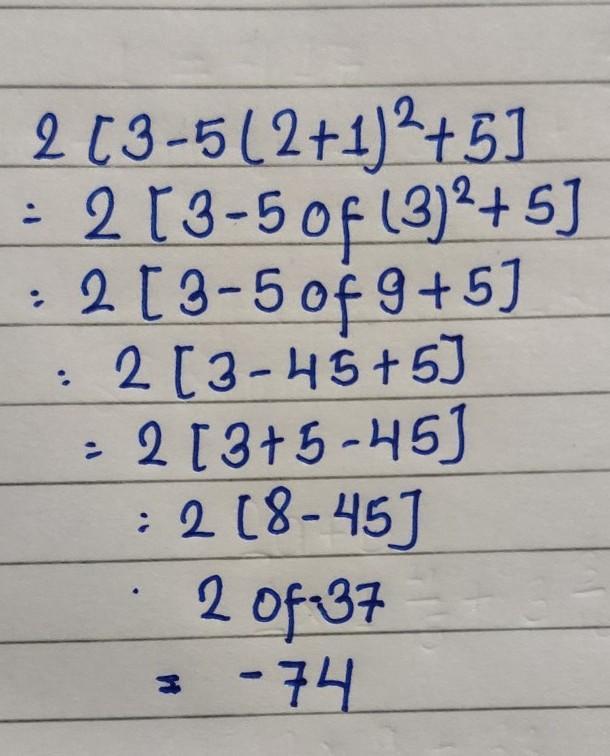 2 [3-5(2+1)²+5]
= 2 [3-5 of (3)²+5]
: 2 [3-5 of 9+5]
: 2 [3-45+5]
= 2 [3+5-45]
: 2 [8-45]
. 2 of-37
= -74